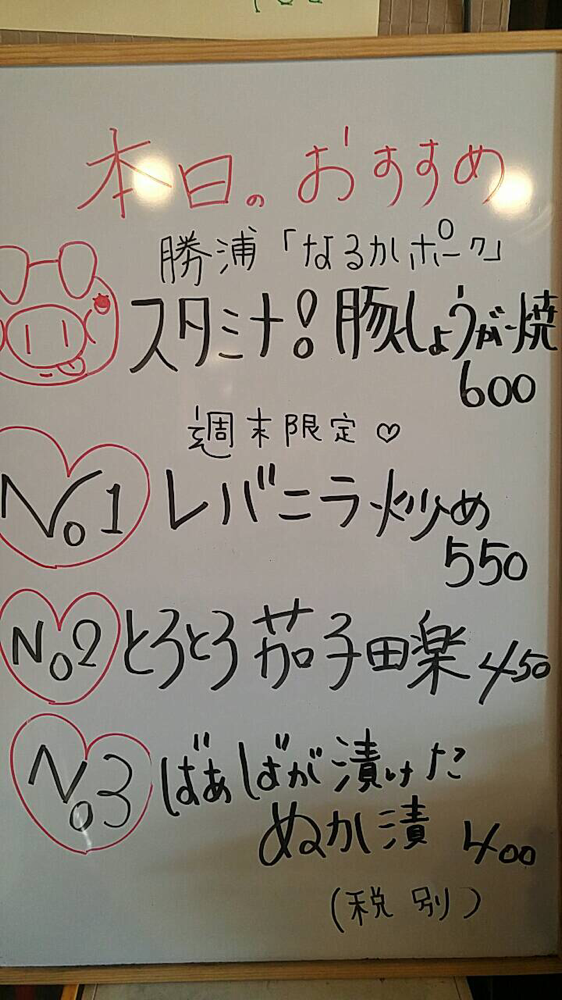 本日のおすすめ
勝浦「なるかポーク」
スタミナ!豚しょうが焼
600
週末限定♡
No1 レバニラ炒め
550
No2 とろとろ茄子田楽 450
No3 ばぁばが漬けた
ぬか漬 400
(税別)